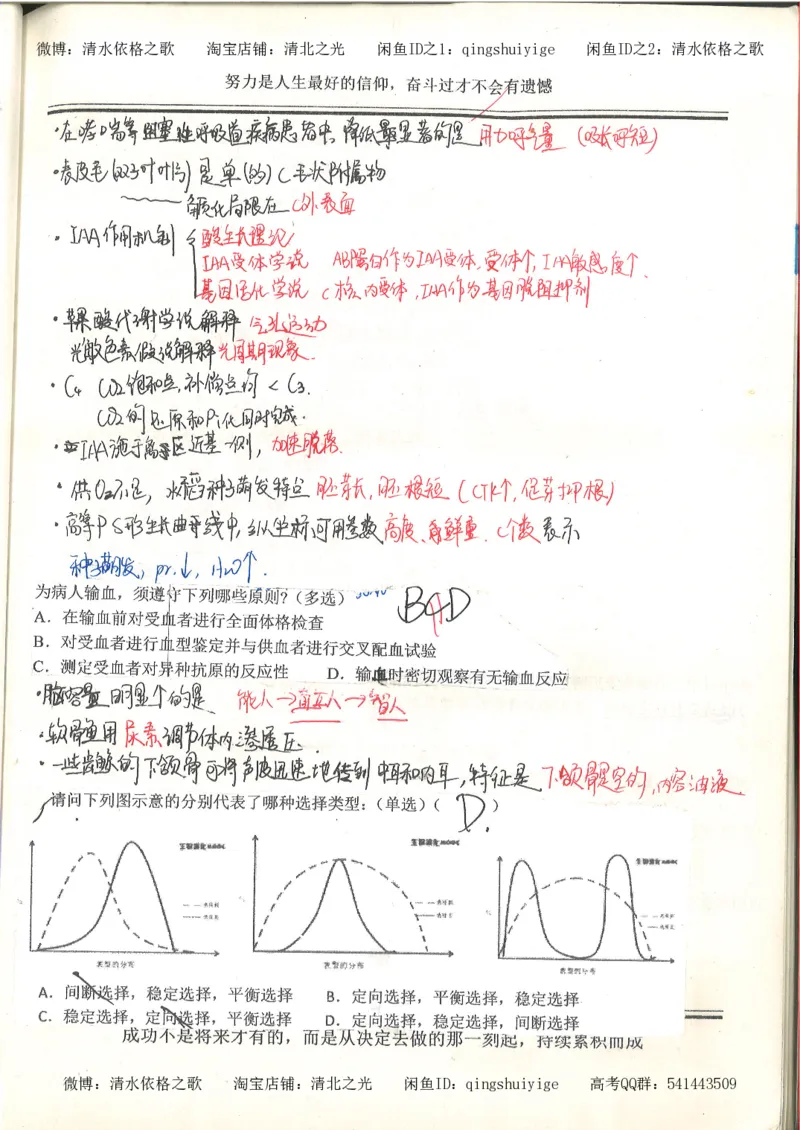 微博：清水依格之歌 淘宝店铺：清北之光 闲鱼ID之1：qingshuiyige 闲鱼ID之2：清水依格之歌
努力是人生最好的信仰，奋斗过才不会有遗憾
·在哮喘等阻塞性呼吸道疾病患者中，降低最显著的是 用力呼气量（吸长呼短）
·表皮毛(双子叶叶片)是单(的)C毛状附属物
角质化局限在C外表面
·IAA作用机制 酸生长理论
IAA受体学说 AB蛋白作为IAA受体，受体↑，IAA敏感度↑.
基因活化学说 C核、内受体，IAA作为基因脱阻抑剂
·苹果酸代谢学说解释 气孔运动
光敏色素假说解释光周期现象.
·C4 CO2饱和点，补偿点均 < C3.
CO2的还原和Pi化同时完成.
·IAA施于离区近基一侧，加速脱落.
·供O2不足，水稻种子萌发特点 胚芽长，胚根短（CTK↑，促芽抑根）
·高等P S形生长曲线中，纵坐标可用参数 高度、鲜重、C个数 表示
种子萌发，pr.↓，H2O↑.
为病人输血，须遵守下列哪些原则?（多选） BCD
A．在输血前对受血者进行全面体格检查
B．对受血者进行血型鉴定并与供血者进行交叉配血试验
C．测定受血者对异种抗原的反应性 D．输血时密切观察有无输血反应
·脑容量明显个的是 能人→直立人→智人
·软骨鱼用尿素调节体内渗透压.
·一些齿鲸的下颌骨可将声波迅速地传到中耳和内耳，特征是 下颌骨是空的，内容油液
请问下列图示意的分别代表了哪种选择类型：（单选）（ D. ）
表型的分布 表型的分布 表型的分布
A．间断选择，稳定选择，平衡选择 B．定向选择，平衡选择，稳定选择
C．稳定选择，定向选择，平衡选择 D．定向选择，稳定选择，间断选择
成功不是将来才有的，而是从决定去做的那一刻起，持续累积而成
微博：清水依格之歌 淘宝店铺：清北之光 闲鱼ID：qingshuiyige 高考QQ群：541443509